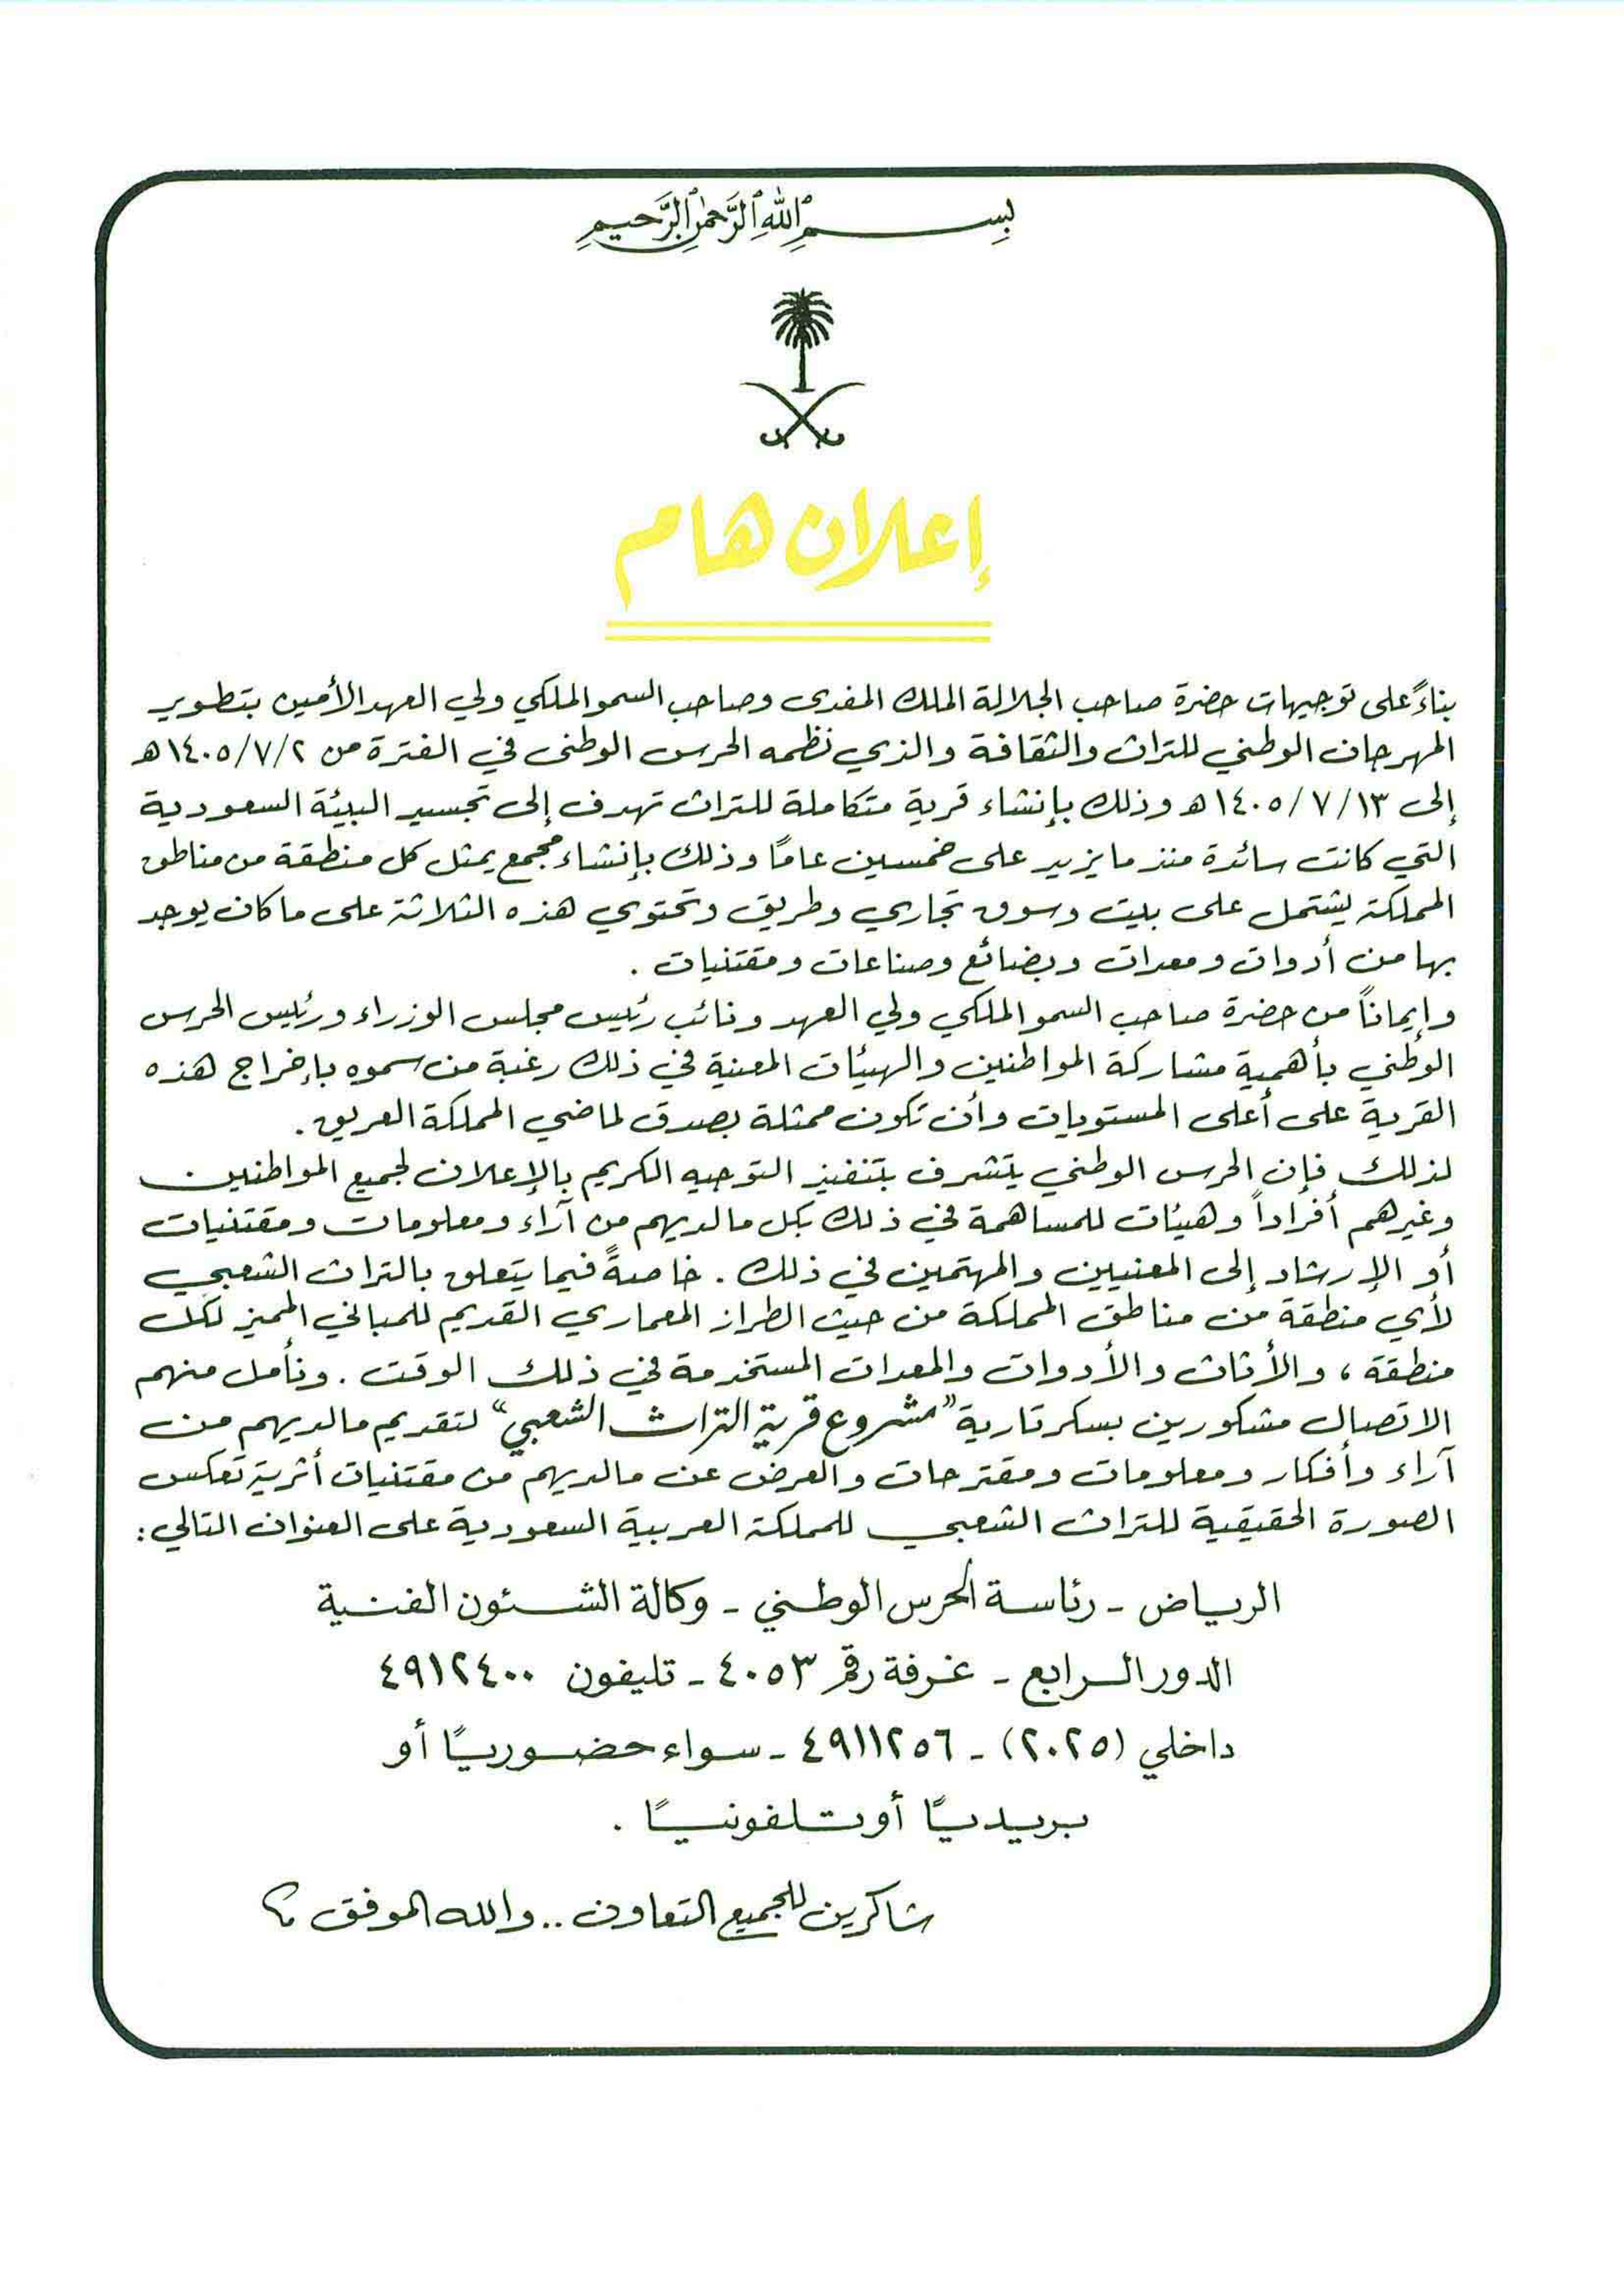 بِسْمِ اللَّهِ الرَّحْمَنِ الرَّحِيمِ
إعلان هام
بناءً على توجيهات حضرة صاحب الجلالة الملك المفدى وصاحب السمو الملكي ولي العهد الأمين بتطوير
المهرجان الوطني للتراث والثقافة والذي نظمه الحرس الوطني في الفترة من ١٤٠٥/٧/٢هـ
إلى ١٤٠٥/٧/١٣هـ وذلك بإنشاء قرية متكاملة للتراث تهدف إلى تجسيد البيئة السعودية
التي كانت سائدة منذ ما يزيد على خمسين عامًا وذلك بإنشاء مجمع يمثل كل منطقة من مناطق
المملكة يشتمل على بيت وسوق تجاري وطريق وتحتوي هذه الثلاثة على ما كان يوجد
بها من أدوات ومعدات وبضائع وصناعات ومقتنيات .
وإيمانًا من حضرة صاحب السمو الملكي ولي العهد ونائب رئيس مجلس الوزراء ورئيس الحرس
الوطني بأهمية مشاركة المواطنين والهيئات المعنية في ذلك رغبة من سموه بإخراج هذه
القرية على أعلى المستويات وأن تكون ممثلة بصدق لماضي المملكة العريق .
لذلك فإن الحرس الوطني يتشرف بتنفيذ التوجيه الكريم بالإعلان لجميع المواطنين
وغيرهم أفرادًا وهيئات للمساهمة في ذلك بكل ما لديهم من آراء ومعلومات ومقتنيات
أو الإرشاد إلى المعنيين والمهتمين في ذلك . خاصةً فيما يتعلق بالتراث الشعبي
لأي منطقة من مناطق المملكة من حيث الطراز المعماري القديم للمباني المميز لكل
منطقة ، والأثاث والأدوات والمعدات المستخدمة في ذلك الوقت . ونأمل منهم
الاتصال مشكورين بسكرتارية "مشروع قرية التراث الشعبي" لتقديم ما لديهم من
آراء وأفكار ومعلومات ومقترحات والعرض عن ما لديهم من مقتنيات أثرية تعكس
الصورة الحقيقية للتراث الشعبي للمملكة العربية السعودية على العنوان التالي :
الرياض - رئاسة الحرس الوطني - وكالة الشئون الفنية
الدور الرابع - غرفة رقم ٤٠٥٣ - تليفون ٤٩١٢٤٠٠
داخلي (٢٠٢٥) - ٤٩١١٢٥٦ - سواء حضوريًا أو
بريديًا أو تلفونيًا .
شاكرين للجميع التعاون .. والله الموفق